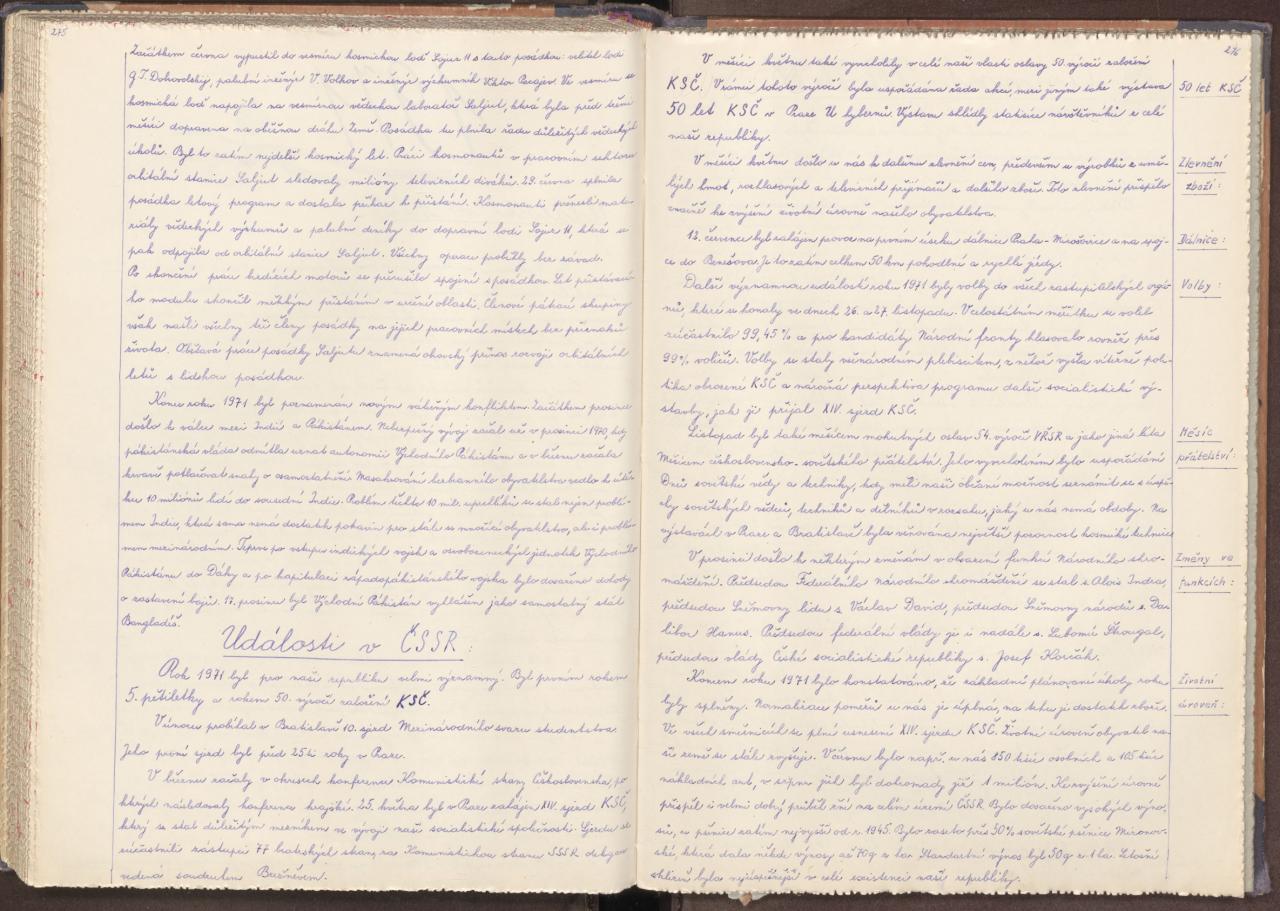 275
Začátkem června vypustil do vesmíru kosmickou loď Sojuz 11 s touto posádkou: velitel lodi
G. T. Dobrovolský, palubní inženýr V. Volkov a inženýr výzkumník Viktor Pacajev. Ve vesmíru se
kosmická loď napojila na vesmírnou vědeckou laboratoř Saljut, která byla před třemi
měsíci dopravena na oběžnou dráhu Země. Posádka tu plnila řadu důležitých vědeckých
úkolů. Byl to zatím nejdelší kosmický let. Práci kosmonautů v pracovním sektoru
orbitální stanice Saljut sledovaly milióny televizních diváků. 29. června splnila
posádka letový program a dostala příkaz k přistání. Kosmonauti přenesli mate-
riály vědeckých výzkumů a palubní deníky do dopravní lodi Sojuz 11, která se
pak odpojila od orbitální stanice Saljut. Všechny operace proběhly bez závad.
Po skončení práce brzdících motorů se přerušilo spojení s posádkou. Let přistávací-
ho modulu skončil měkkým přistáním v určené oblasti. Členové pátrací skupiny
však našli všechny tři členy posádky na jejich pracovních místech bez příznaků
života. Obětavá práce posádky Saljutu znamená obrovský přínos rozvoji orbitálních
letů s lidskou posádkou.
Konec roku 1971 byl poznamenán novým válečným konfliktem. Začátkem prosince
došlo k válce mezi Indií a Pákistánem. Nebezpečný vývoj začal už v prosinci 1970, kdy
pákistánská vláda odmítla uznat autonomii Východního Pákistánu a v březnu začala
krvavě potlačovat snahy o osamostatnění. Masakrování bezbranného obyvatelstva vedlo k útě-
ku 10 miliónů lidí do sousední Indie. Problém těchto 10 mil. uprchlíků se stal nejen problé-
mem Indie, která sama nemá dostatek potravin pro stále se množící obyvatelstvo, ale i problé-
mem mezinárodním. Teprve po vstupu indických vojsk a osvobozeneckých jednotek Východního
Pákistánu do Dáky a po kapitulaci západopákistánského vojska bylo dosaženo dohody
o zastavení bojů. 17. prosince byl Východní Pákistán vyhlášen jako samostatný stát
Bangladéš.
Události v ČSSR:
Rok 1971 byl pro naši republiku velmi významný. Byl prvním rokem
5. pětiletky a rokem 50. výročí založení KSČ.
V únoru probíhal v Bratislavě 10. sjezd Mezinárodního svazu studentstva.
Jeho první sjezd byl před 25ti roky v Praze.
V březnu začaly v okresech konference Komunistické strany Československa, po
kterých následovaly konference krajské. 25. května byl v Praze zahájen XIV. sjezd KSČ,
který se stal důležitým mezníkem ve vývoji naší socialistické společnosti. Sjezdu se
zúčastnili zástupci 77 bratrských stran, za Komunistickou stranu SSSR delegace
vedená soudruhem Brežněvem.
276
V měsíci květnu také vyvrcholily v celé naší vlasti oslavy 50 výročí založení
KSČ. V rámci tohoto výročí byla uspořádána řada akcí, mezi jinými také výstava
50 let KSČ v Praze U hybernů. Výstavu shlédly statisíce návštěvníků z celé
naší republiky.
50 let KSČ
V měsíci květnu došlo u nás k dalšímu zlevnění cen, především u výrobků z umě-
lých hmot, rozhlasových a televizních přijímačů a dalšího zboží. Toto zlevnění přispělo
značně ke zvýšení životní úrovně našeho obyvatelstva.
Zlevnění
zboží:
12. července byl zahájen provoz na prvním úseku dálnice Praha - Mirošovice a na spoj-
ce do Benešova. Je to zatím celkem 50 km pohodlné a rychlé jízdy.
Dálnice:
Další významnou událostí roku 1971 byly volby do všech zastupitelských orgá-
nů, které se konaly ve dnech 26. a 27. listopadu. V celostátním měřítku se voleb
zúčastnilo 99,45 % a pro kandidáty Národní fronty hlasovalo rovněž přes
99 % voličů. Volby se staly všenárodním plebiscitem, z něhož vyšla vítězně poli-
tika obrozené KSČ a náročná perspektiva programu další socialistické vý-
stavby, jak ji přijal XIV. sjezd KSČ.
Volby:
Listopad byl také měsícem mohutných oslav 54. výročí VŘSR a jako jiná léta
Měsícem československo-sovětského přátelství. Jeho vyvrcholením bylo uspořádání
Dnů sovětské vědy a techniky, kdy měli naši občané možnost seznámit se s úspě-
chy sovětských vědců, techniků a dělníků v rozsahu, jaký u nás nemá obdoby. Na
výstavách v Praze a Bratislavě byla věnována největší pozornost kosmické technice.
Měsíc
přátelství:
V prosinci došlo k některým změnám v obsazení funkcí Národního shro-
máždění. Předsedou Federálního národního shromáždění se stal s. Alois Indra,
předsedou Sněmovny lidu s. Václav David, předsedou Sněmovny národů s. Da-
libor Hanes. Předsedou federální vlády je i nadále s. Lubomír Štrougal,
předsedou vlády České socialistické republiky s. Josef Korčák.
Změny ve
funkcích:
Koncem roku 1971 bylo konstatováno, že základní plánované úkoly roku
byly splněny. Normalizace poměrů u nás je úplná, na trhu je dostatek zboží.
Ve všech směrnicích se plní usnesení XIV. sjezdu KSČ. Životní úroveň obyvatel na-
ší země se stále zvyšuje. V červnu bylo např. u nás 850 tisíc osobních a 165 tisíc
nákladních aut, v srpnu jich bylo dohromady již 1 milión. Ke zvýšení úrovně
přispěl i velmi dobrý průběh žní na celém území ČSSR. Bylo dosaženo vysokých výno-
sů, u pšenice zatím nejvyšší od r. 1945. Bylo zaseto přes 30 % sovětské pšenice Mironov-
ské, která dala někde výnosy až 70 q z ha. Standartní výnos byl 50 q z 1 ha. Letošní
sklizeň byla nejúspěšnější v celé existenci naší republiky.
Životní
úroveň: